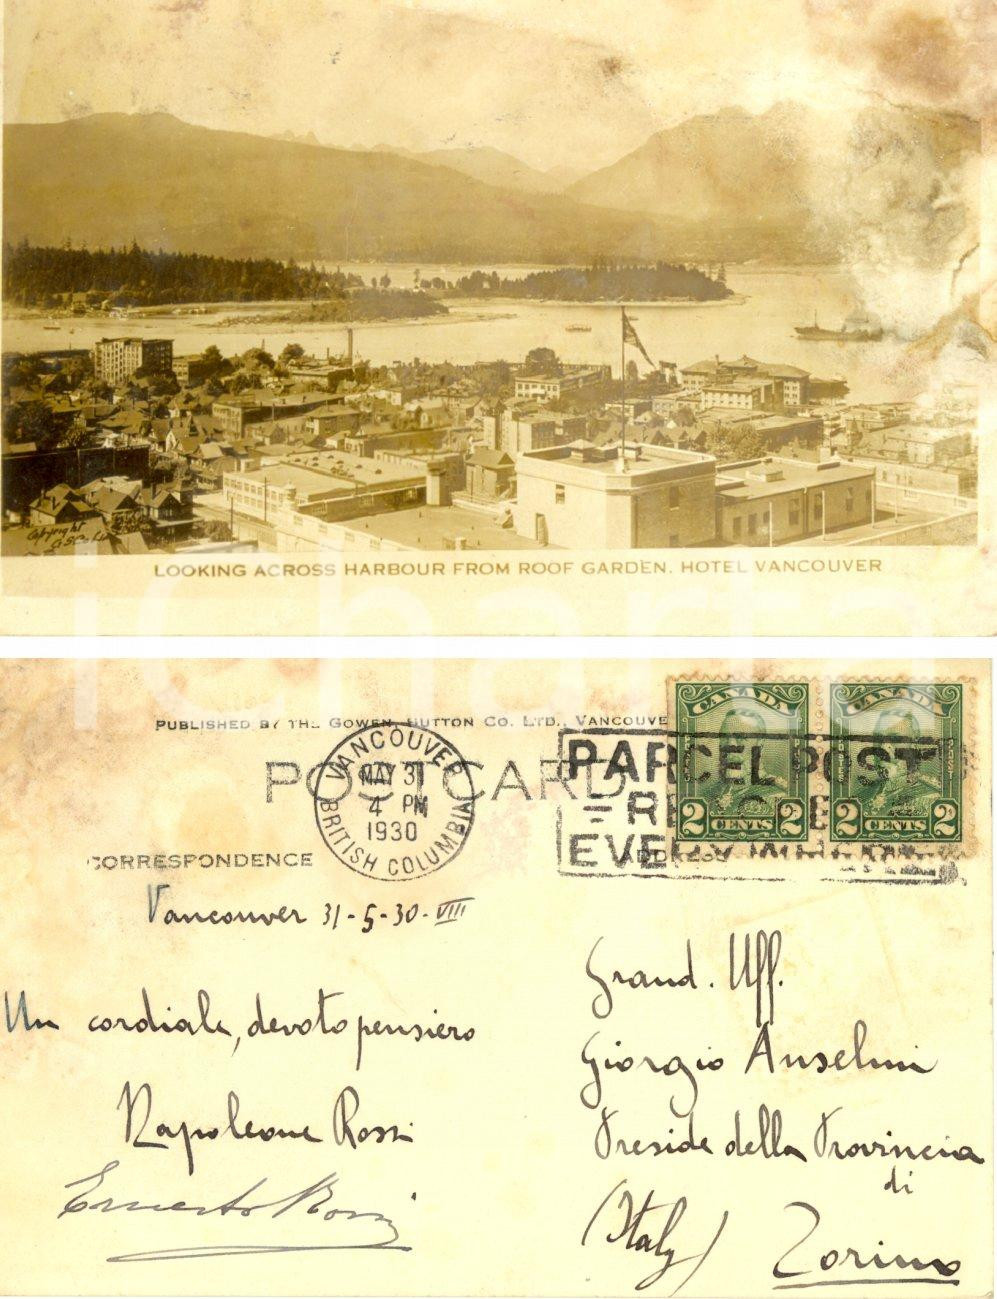 Copyright
LOOKING ACROSS HARBOUR FROM ROOF GARDEN. HOTEL VANCOUVER
iCharta
PUBLISHED BY THE GOWEN, SUTTON CO. LTD., VANCOUVE
POST CARD
VANCOUVER
MAY 31
4 PM
1930
BRITISH COLUMBIA
PARCEL POST
EVERYWHERE
CANADA
2 CENTS 2
CANADA
2 CENTS 2
CORRESPONDENCE
ADDRESS
Vancouver 31-5-30-VIII
Un cordiale, devoto pensiero
Napoleone Rossi
Ernesto Rossi
Grand. Uff.
Giorgio Anselmi
Preside della Provincia
di
(Italy) Torino